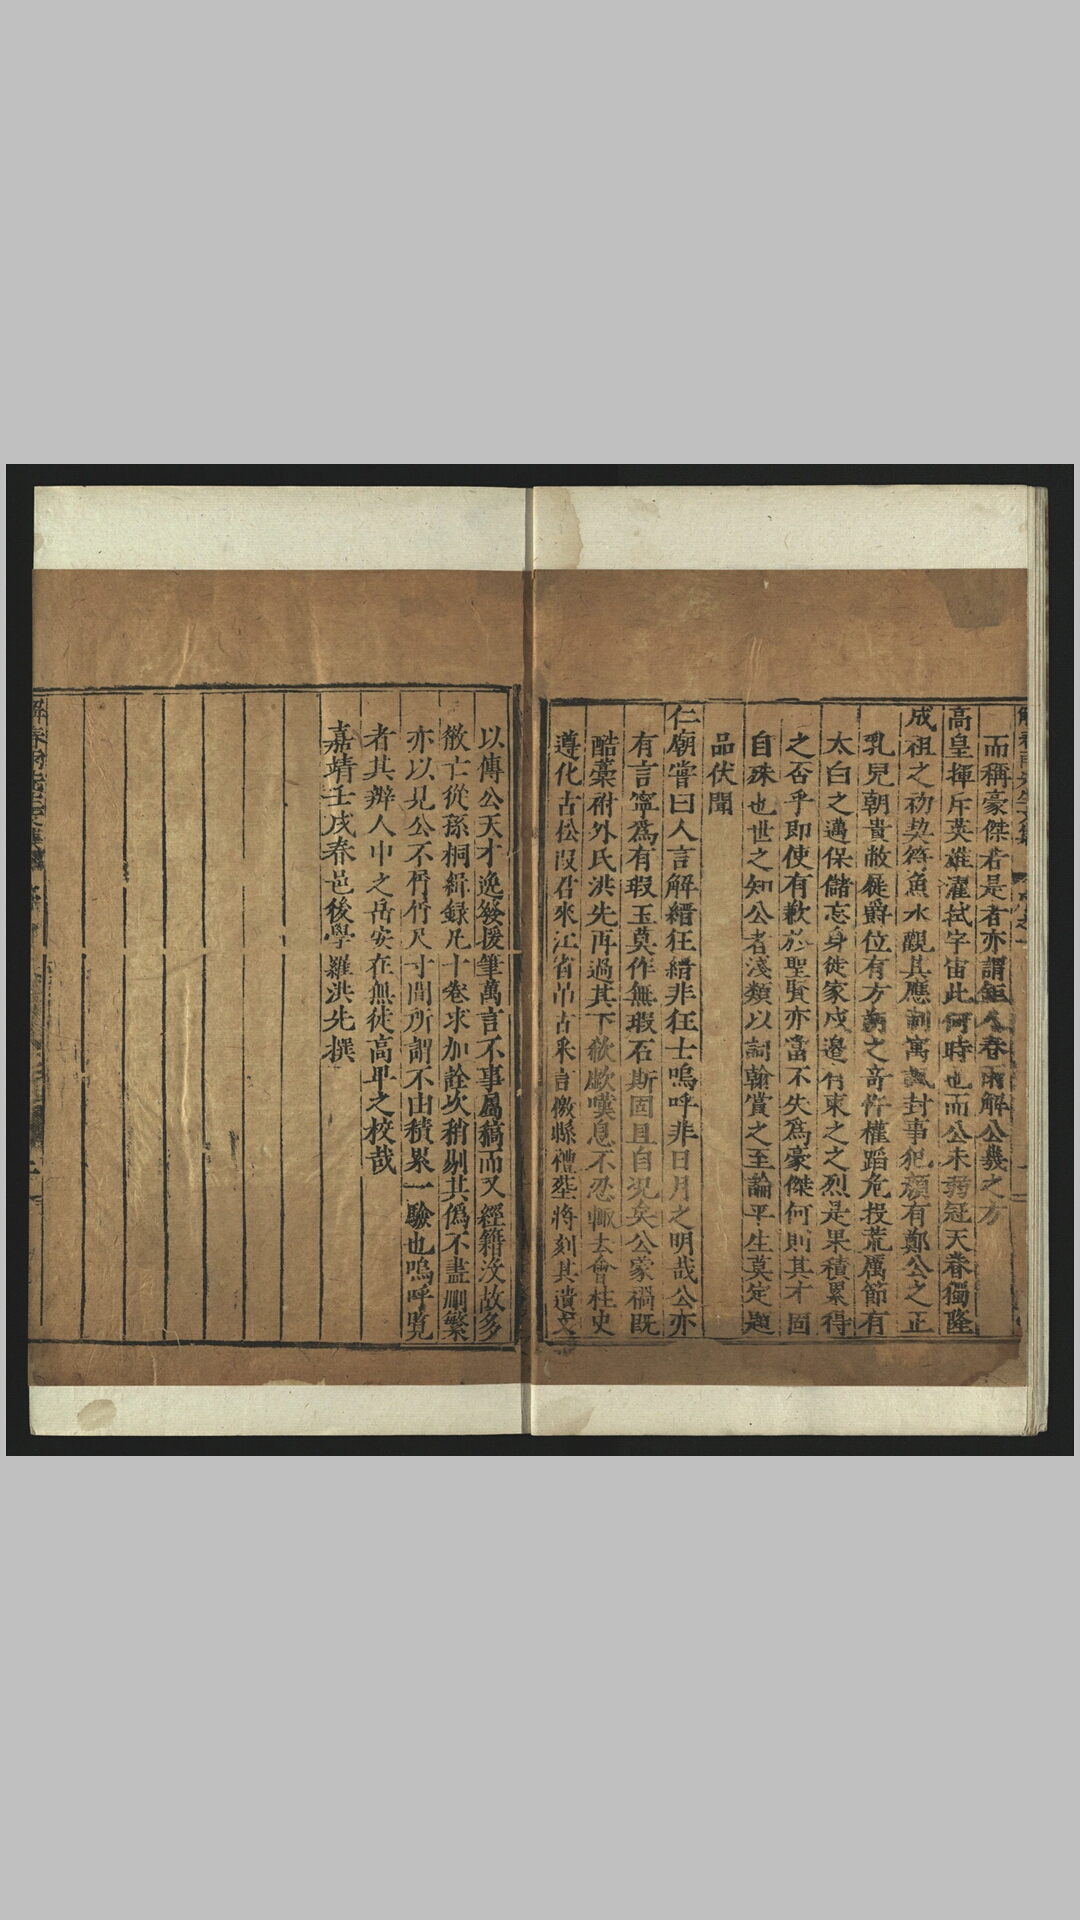 而稱豪傑若是者亦謂鉅人春雨解公幾之方
高皇揮斥英雄濯拭宇宙此何時也而公未弱冠天眷獨隆
成祖之初契符魚水觀其應制寓諷封事犯顏有鄭公之正
乳兒朝貴敝屣爵位有方朔之奇忤權蹈危投荒厲節有
太白之邁保儲忘身徙家戍邊有東之之烈是果積累得
之否乎即使有歉於聖賢亦當不失為豪傑何則其才固
自殊也世之知公者淺類以詞翰賞之至論平生莫定題
品伏聞
仁廟嘗曰人言解縉狂縉非狂士嗚呼非日月之明哉公亦
有言寧為有瑕玉莫作無瑕石斯固且自況矣公蒙禍既
酷藁祔外氏洪先再過其下欷歔嘆息不忍輒去會柱史
遵化古松段君來江省吊古釆言檄縣禮塟將刻其遺文
以傳公天才逸發援筆萬言不事屬稿而又經籍沒故多
散亡從孫桐緝録凡十卷求加詮次稍剔其偽不盡刪繁
亦以見公不屑屑尺寸間所謂不由積累一驗也嗚呼覽
者其辨人中之岳安在無徒高甲之校哉
嘉靖壬戌春邑後學羅洪先撰